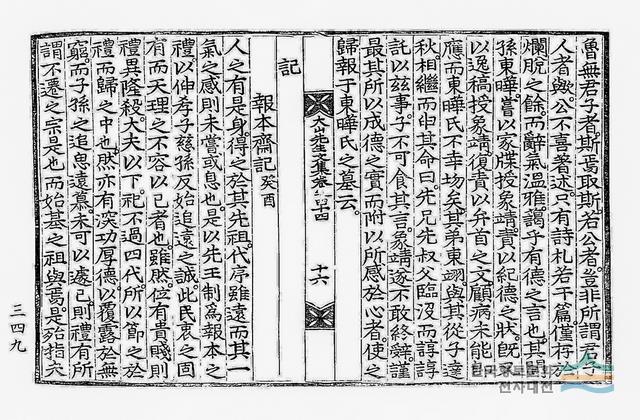 魯無君子者斯焉取斯若公者豈非所謂君子
人者歟公不喜著述只有詩札若干篇僅存於
爛脫之餘而辭氣溫雅藹乎有德之言也其聞
孫東曄嘗以家牒授象靖責以紀德之狀旣
以逸稿授象靖復責以弁首之文顧病未能
應而東曄氏不幸圽矣其弟東翊與其從子達
秋相繼而申其命曰先兄先叔父臨沒而諄諄
託以玆事子不可食其言象靖遂不敢終辭謹
最其所以成德之實而附以所感於心者使之
歸報于東曄氏之墓云
大山先生文集卷之四十四 十六
記
報本齋記 癸酉
人之有是身得之於其先祖代序雖遠而其一
氣之感則未嘗或息也是以先王制爲報本之
禮以伸孝子慈孫反始追遠之誠此民衷之固
有而天理之不容以已者也雖然位有貴賤則
禮異隆殺大夫以下祀不過四代所以節之於
禮而歸之中也然亦有突功厚德以覆露於無
窮而子孫之追思遠慕未可以遽已則禮有所
謂不遷之宗是也而始基之祖與焉是殆指夫
三四九